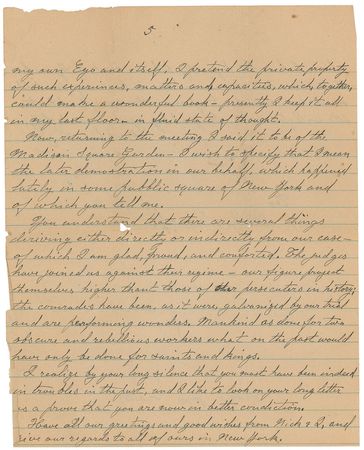 5
my own Ego and itself, I pretend the private property
of such experiences, matters and capacities, which together,
could make a wonderful book - presently I keep it all
in my last floor in fluid state of thought.
Now, returning to the meeting I said it to be of the
Madison Square Garden - I wish to specify that I mean
the later demostration in our behalf, which happened
lately in some public square of New York and
of which you tell me.
You understand that there are several things
deriving either directly or indirectly from our case -
of which I am glad, proud, and comforted. The judges
have joined us against their regime - our figure project
themselves higher than those of other persecuters in history;
the comrades have been, as it were, galvanized by our trial
and are performing wonders. Mankind as done for two
obscure and rebellious workers what on the past would
have only be done for saints and kings.
I realize by your long silence that you must have been indeed
in troubles in the past, and I like to look on your long letter
as a prove that you are now in better condiction.
Have all our greetings and good wishes from Nick &
give our regards to all of ours in New York.